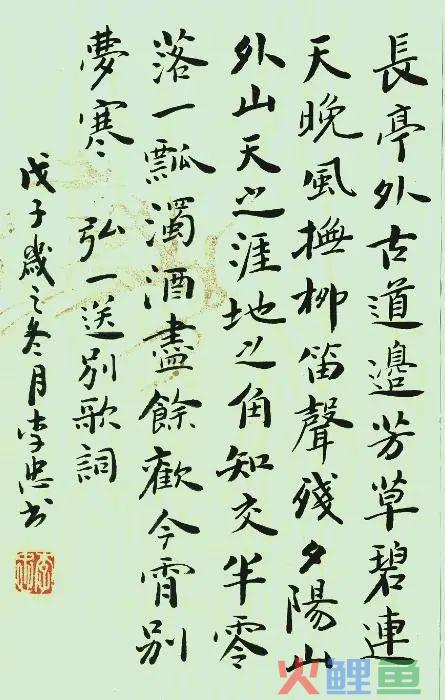 長亭外古道邊芳草碧連
天晚風撫柳笛聲殘夕陽山
外山天之涯地之角知交半零
落一瓢濁酒盡餘歡今宵別
夢寒 弘一送別歌詞
戊子歲之冬月李忠书
火鲤鱼